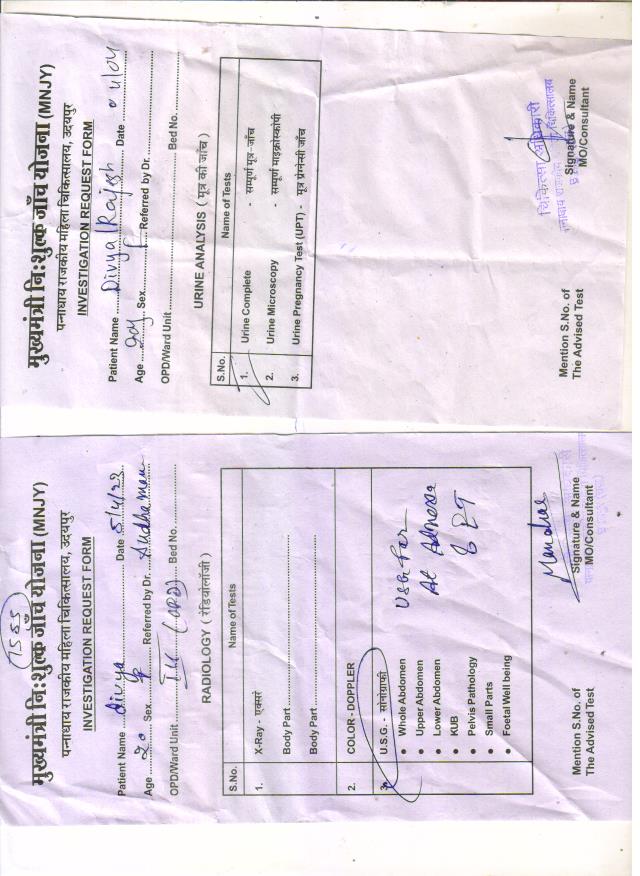 मुख्यमंत्री नि:शुल्क जाँच योजना (MNJY)
पन्नाधाय राजकीय महिला चिकित्सालय, उदयपुर
INVESTIGATION REQUEST FORM
Patient Name Divya Rajesh Date
Age Sex Referred by Dr.
OPD/Ward Unit Bed No.
URINE ANALYSIS ( मूत्र की जाँच )
S.No. Name of Tests
1. Urine Complete - सम्पूर्ण मूत्र-जाँच
2. Urine Microscopy - सम्पूर्ण माइक्रोस्कोपी
3. Urine Pregnancy Test (UPT) - मूत्र प्रेग्नेन्सी जाँच
चिकित्सा अधिकारी
Mention S.No. of Signature & Name
The Advised Test MO/Consultant
1585
मुख्यमंत्री नि:शुल्क जाँच योजना (MNJY)
पन्नाधाय राजकीय महिला चिकित्सालय, उदयपुर
INVESTIGATION REQUEST FORM
Patient Name Divya Date 5/4/23
Age 20 Sex F Referred by Dr.
OPD/Ward Unit (OPD) Bed No.
RADIOLOGY ( रेडियोलॉजी )
S.No. Name of Tests
1. X-Ray - एक्सरे
Body Part
Body Part
2. COLOR - DOPPLER
3. U.S.G. - सोनोग्राफी
• Whole Abdomen
• Upper Abdomen
• Lower Abdomen
• KUB
• Pelvis Pathology
• Small Parts
• Foetal Well being
USG For
Mention S.No. of Signature & Name
The Advised Test MO/Consultant